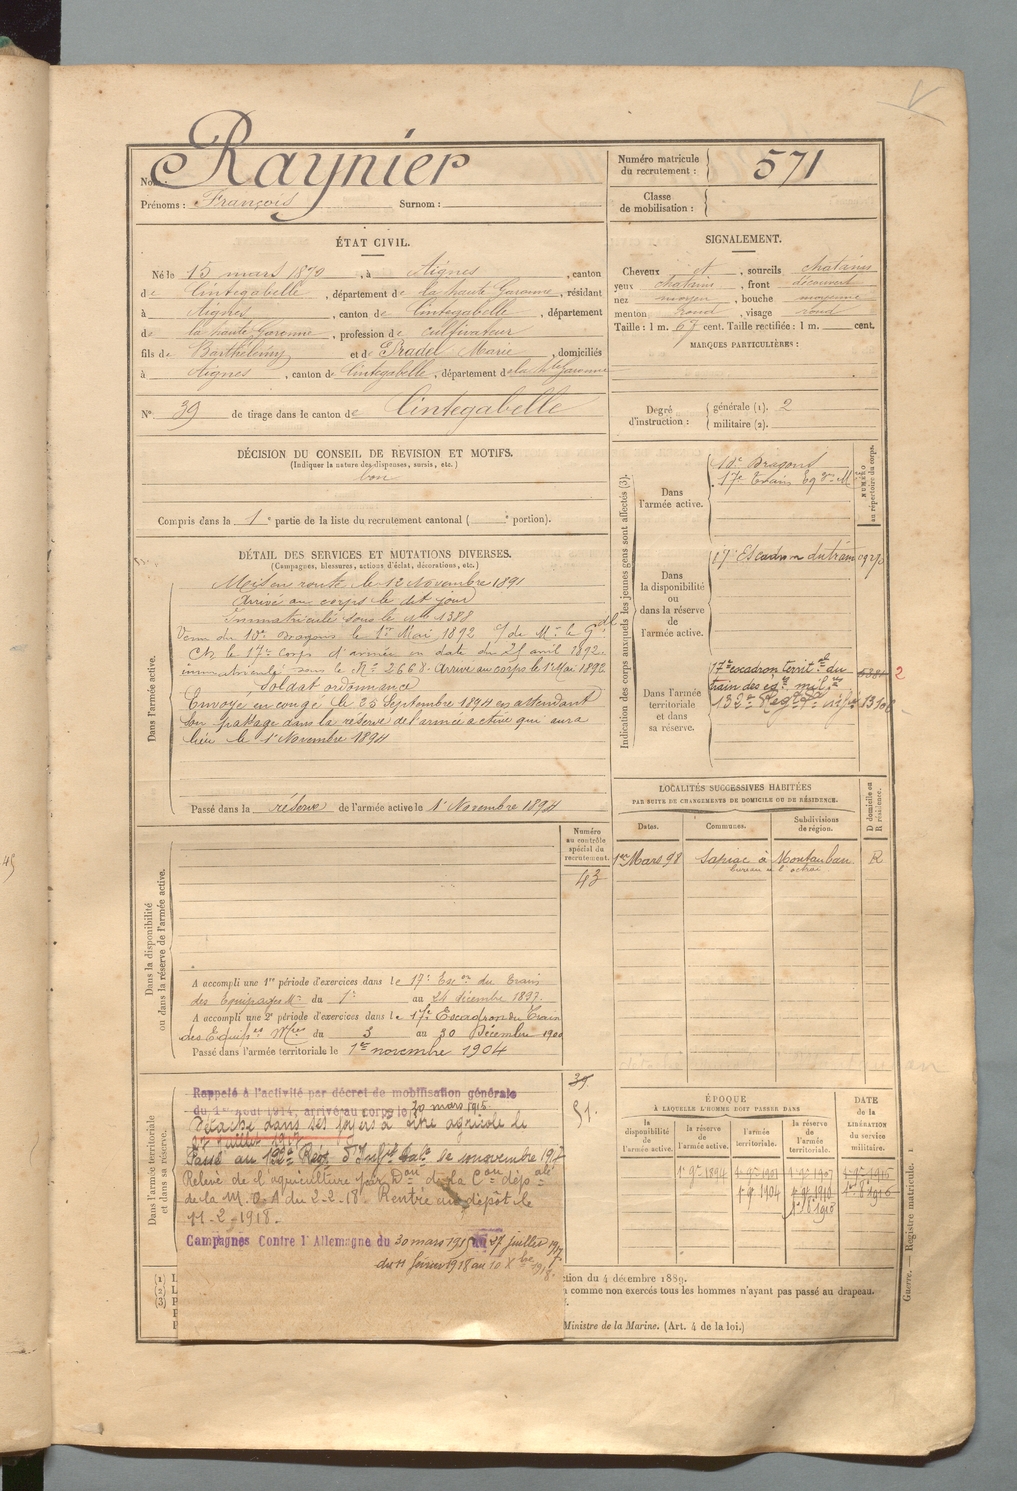 Nom : Raynier
Prénoms : François Surnom :
Numéro matricule du recrutement : 571
Classe de mobilisation :
ÉTAT CIVIL.
Né le 15 mars 1870, à Aignes, canton
de Cintegabelle, département de la haute Garonne, résidant
à Aignes, canton de Cintegabelle, département
de la haute Garonne, profession de cultivateur
fils de Barthélemy et de Pradel Marie, domiciliés
à Aignes, canton de Cintegabelle, département de la hte Garonne
N° 39 de tirage dans le canton de Cintegabelle
SIGNALEMENT.
Cheveux et, sourcils chatains
yeux chatains, front découvert
nez moyen, bouche moyenne
menton rond, visage rond
Taille : 1 m. 67 cent. Taille rectifiée : 1 m. cent.
MARQUES PARTICULIÈRES :
Degré d'instruction : générale (1). 2
militaire (2).
DÉCISION DU CONSEIL DE RÉVISION ET MOTIFS.
(Indiquer la nature des dispenses, sursis, etc.)
bon
Compris dans la 1e partie de la liste du recrutement cantonal ( e portion).
DÉTAIL DES SERVICES ET MUTATIONS DIVERSES.
(Campagnes, blessures, actions d'éclat, décorations, etc.)
Dans l'armée active.
Mis en route le 12 Novembre 1891
Arrivé au corps le dit jour
Immatriculé sous le No 1388
Venu du 10e Dragons le 1er Mai 1892 de Mr le Gal
Ct le 17e Corps d'armée en date du 21 avril 1892
immatriculé sous le No 2668. Arrivé au corps le 1er Mai 1892
Soldat ordonnance
Envoyé en congé le 25 Septembre 1894 en attendant
son passage dans la réserve de l'armée active qui aura
lieu le 1er Novembre 1894
Passé dans la réserve de l'armée active le 1er Novembre 1894
Indication des corps auxquels les jeunes gens sont affectés (3).
NUMÉRO au répertoire du corps.
Dans l'armée active.
10e Dragons
17e Train Eqges M
Dans la disponibilité ou dans la réserve de l'armée active.
17e Escadron du train
Dans l'armée territoriale et dans sa réserve.
17e escadron territal du
train des éqes milres
132e Regt
2
LOCALITÉS SUCCESSIVES HABITÉES
PAR SUITE DE CHANGEMENTS DE DOMICILE OU DE RÉSIDENCE.
Dates. Communes. Subdivisions de région. D domicile ou R résidence.
1er Mars 98 Sapiac à Montauban R
bureau de l'octroi
Dans la disponibilité ou dans la réserve de l'armée active.
Numéro au contrôle spécial du recrutement.
43
A accompli une 1re période d'exercices dans le 17e Escon du Train
des Equipages Mres du 1er au 24 décembre 1897.
A accompli une 2e période d'exercices dans le 17e Escadron du Train
des Equipges Mres du 3 au 30 Décembre 1900
Passé dans l'armée territoriale le 1er novembre 1904
Dans l'armée territoriale et dans sa réserve.
39
51.
Rappelé à l'activité par décret de mobilisation générale
du 1er août 1914, arrivé au corps le 30 mars 1915
Détaché dans ses foyers à titre agricole le
27 juillet 1917
Passé au 132e Regt d'Inftie Tale le 10 novembre 1917
Relevé de l'agriculture par Don de la Con dépale
de la M. O. A du 2-2-18. Rentré au dépôt le
11-2-1918.
Campagnes Contre l'Allemagne du 30 mars 1915 au 27 juillet 1917
du 11 février 1918 au 10 Xbre 1918.
ÉPOQUE
À LAQUELLE L'HOMME DOIT PASSER DANS
la disponibilité de l'armée active. la réserve de l'armée active. l'armée territoriale. la réserve de l'armée territoriale.
DATE de la LIBÉRATION du service militaire.
1er 9bre 1894 1er 9bre 1907
1er 9bre 1904 1er 9bre 1910
(1)
(2)
(3)
ction du 4 décembre 1889.
comme non exercés tous les hommes n'ayant pas passé au drapeau.
Ministre de la Marine. (Art. 4 de la loi.)
Guerre. — Registre matricule. 1